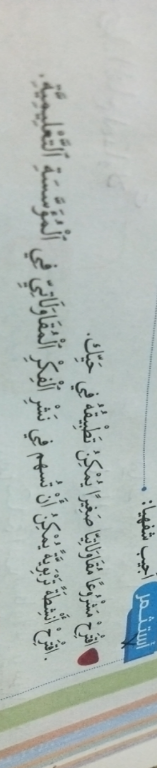 أستثمر
أجيب شفهيا:
اقْتَرِحْ مَشْرُوعًا مُقَاوَلَاتِيًّا صَغِيرًا يُمْكِنُ تَطْبِيقُهُ فِي حَيِّكَ.
اقْتَرِحْ أَنْشِطَةً تَرْبَوِيَّةً يُمْكِنُ أَنْ تُسْهِمَ فِي نَشْرِ الْفِكْرِ الْمُقَاوَلَاتِيِّ فِي الْمُؤَسَّسَةِ التَّعْلِيمِيَّةِ.